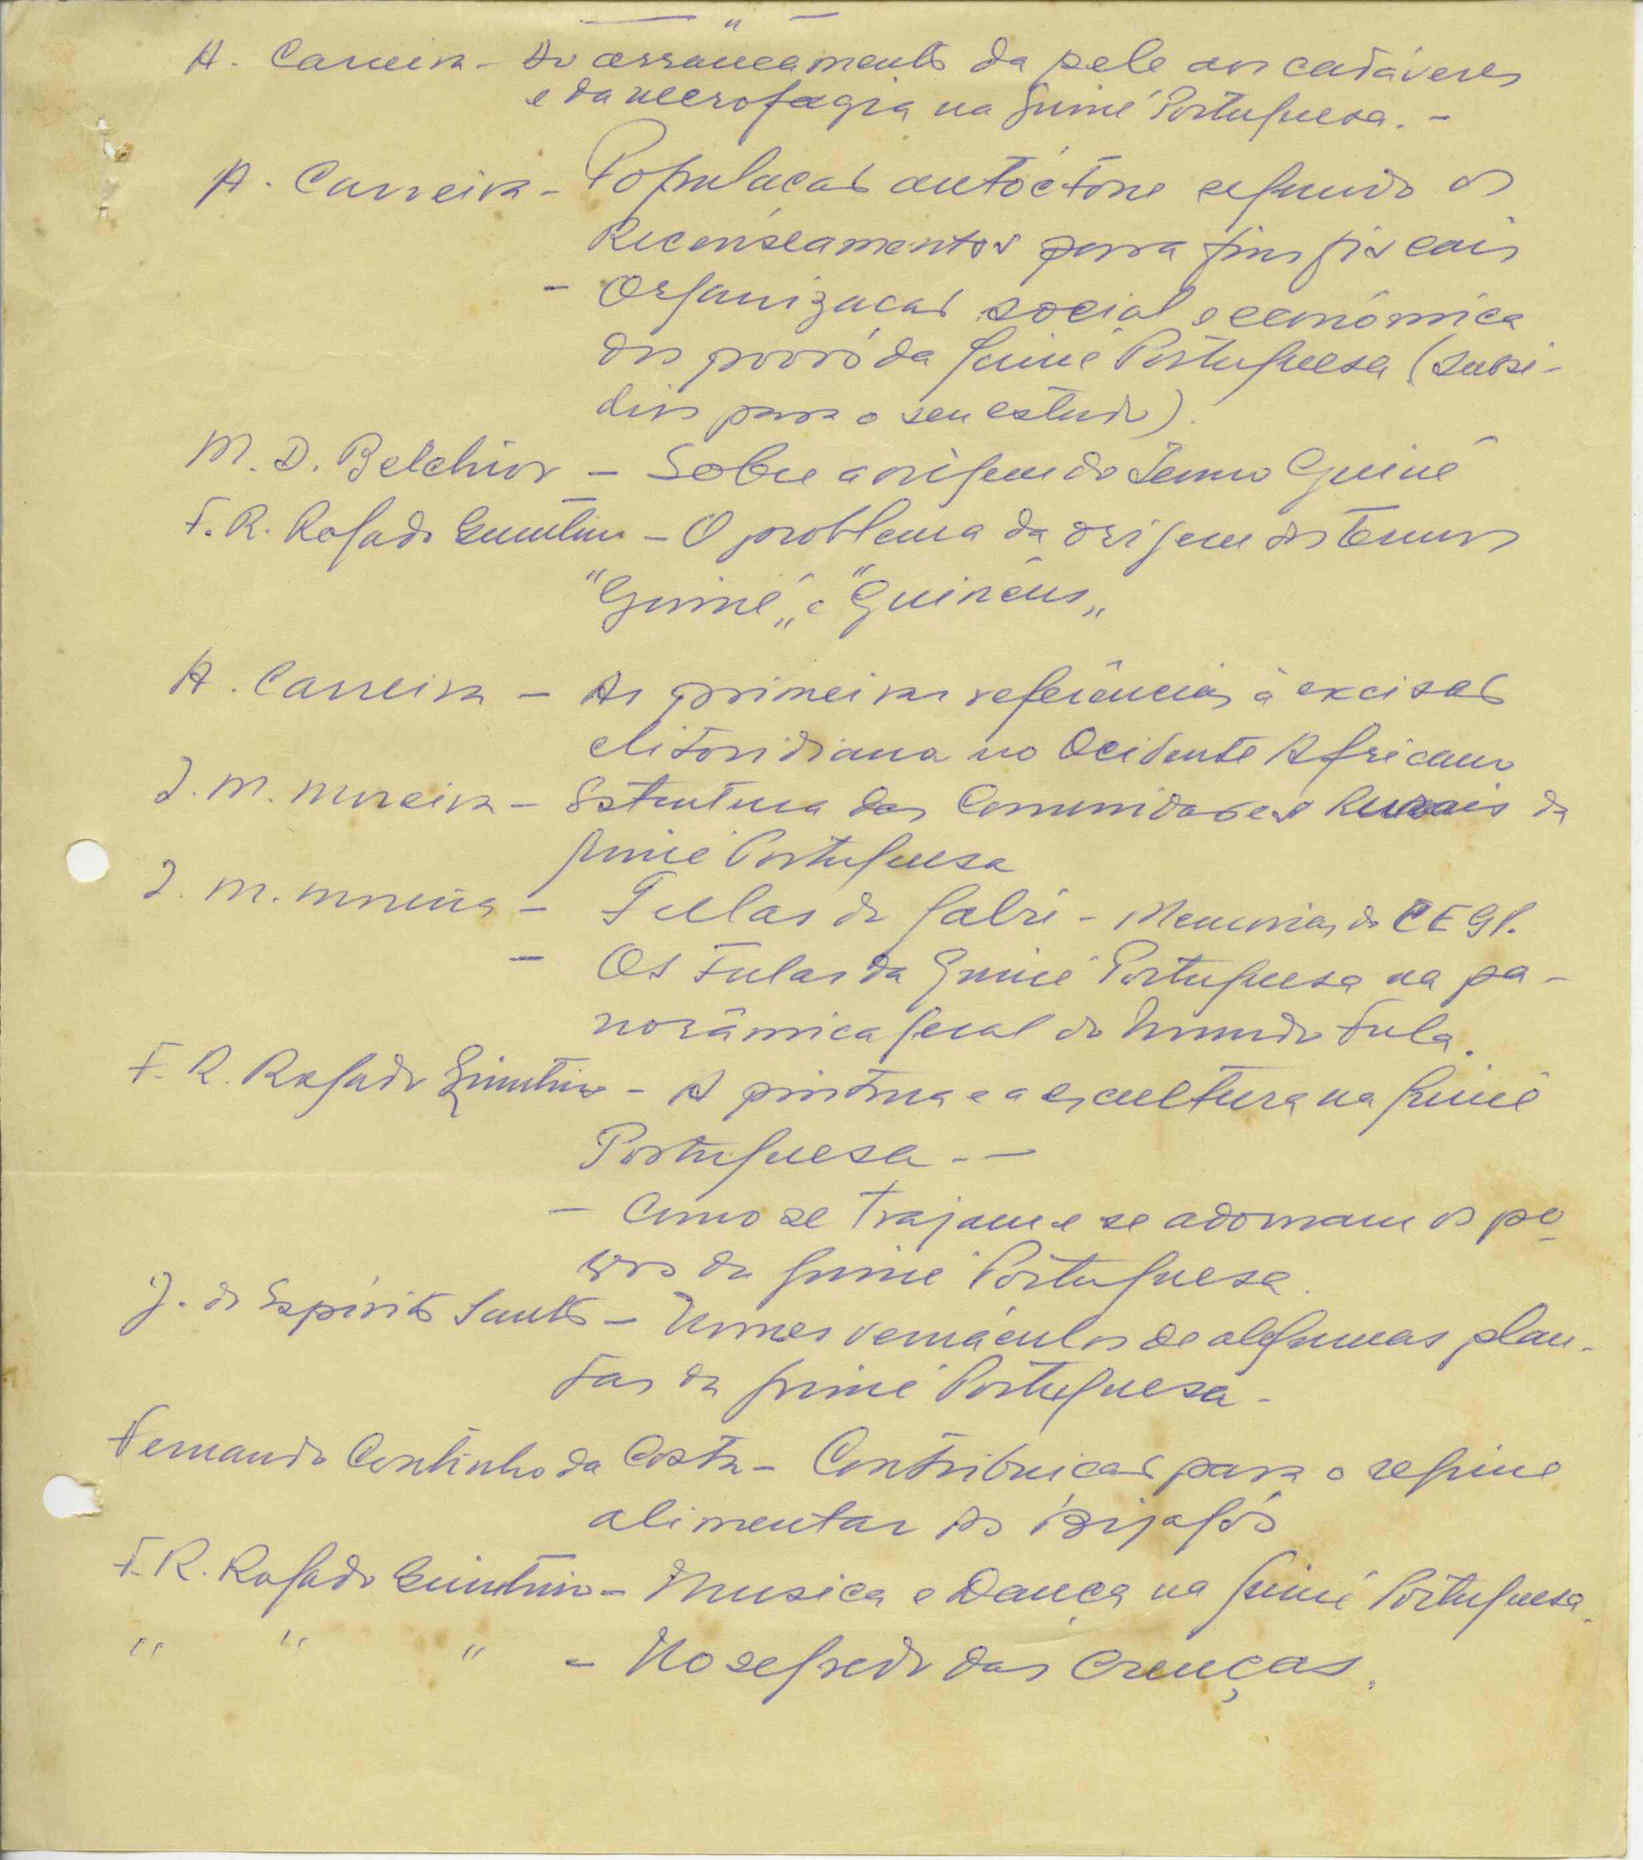 "
A. Carreira - Do arrancamento da pele aos cadáveres
e da necrofagia na Guiné Portuguesa. -
A. Carreira - População autóctone segundo os
Recenseamentos para fins fiscais
- Organização social e económica
dos povos da Guiné Portuguesa (subsí-
dios para o seu estudo).
M. D. Belchior - Sobre a origem do Termo Guiné
F. R. Rogado Quintino - O problema da origem dos termos
"Guiné" e "Guinéus"
A. Carreira - As primeiras referências à excisão
clitoridiana no Ocidente Africano
J. M. Moreira - Estrutura das Comunidades Rurais da
Guiné Portuguesa
J. M. Moreira - Fulas do Gabú - Memórias do CEGP.
- Os Fulas da Guiné Portuguesa na pa-
norâmica geral do Mundo Fula.
F. R. Rogado Quintino - A pintura e a escultura na Guiné
Portuguesa. -
- Como se trajam e se adornam os po-
vos da Guiné Portuguesa.
J. do Espírito Santo - Nomes vernáculos de algumas plan-
tas da Guiné Portuguesa -
Fernando Coutinho da Costa - Contribuição para o regime
alimentar dos Bijagós
F. R. Rogado Quintino - Musica e Dança na Guiné Portuguesa.
" " " - No segredo das Crenças.